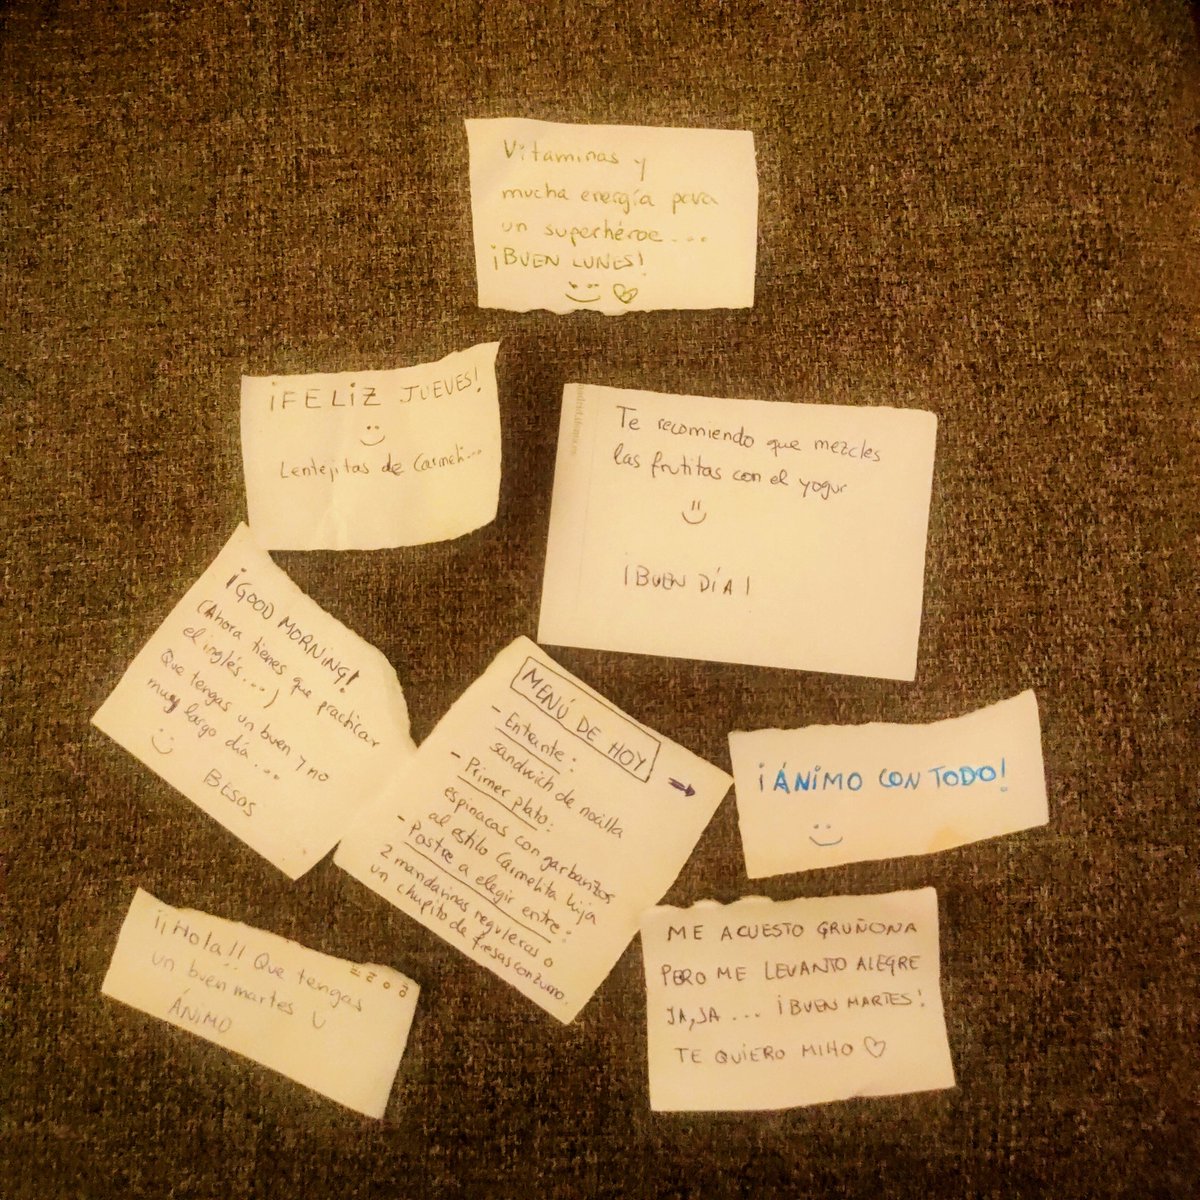 Vitaminas y
mucha energía para
un superhéroe....
¡BUEN LUNES!
¡FELIZ JUEVES!
Lentejitas de Carmeli...
Te recomiendo que mezcles
las frutitas con el yogur
¡BUEN DÍA!
¡GOOD MORNING!
(Ahora tienes que practicar
el inglés...)
Que tengas un buen y no
muy largo día...
BESOS
MENÚ DE HOY
- Entrante:
sandwich de nocilla
- Primer plato:
espinacas con garbanzos
al estilo Carmelita hija
- Postre a elegir entre:
2 mandarinas reguleras o
un chupito de fresas con zumo.
¡ÁNIMO CON TODO!
¡¡Hola!! Que tengas
un buen martes
ÁNIMO
ME ACUESTO GRUÑONA
PERO ME LEVANTO ALEGRE
JA, JA ... ¡BUEN MARTES!
TE QUIERO MIHO